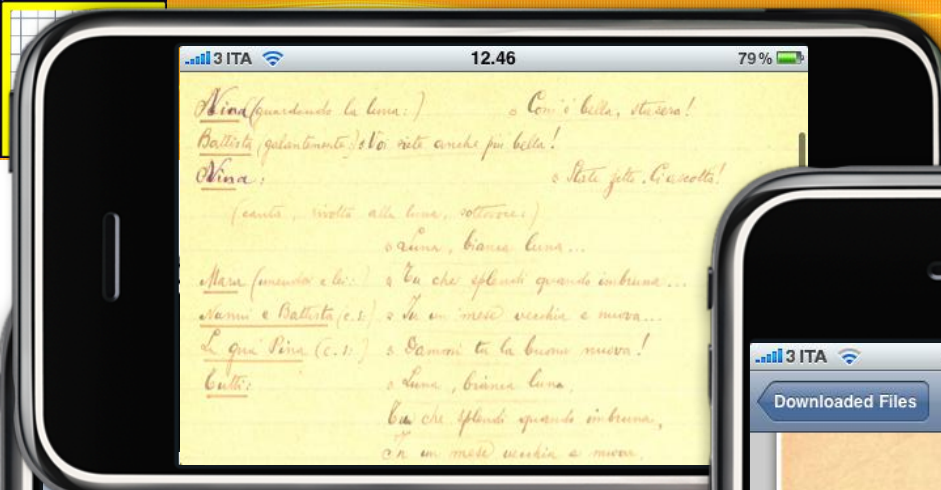 3 ITA 12.46 79%
Nina (guardando la luna:) Com'è bella, stasera!
Battista (galantemente:) Voi siete anche più bella!
Nina: State zitto. Ci ascolta!
(canta, rivolta alla luna, sottovoce:)
Luna, bianca luna...
Mara (unendosi a lei: Tu che splendi quando imbruna...
Nanni e Battista (c.s:) Tu un mese vecchia e nuova...
La gna' Pina (c.s:) Dammi tu la buona nuova!
Tutti: Luna, bianca luna,
Tu che splendi quando imbruna,
In un mese vecchia e nuova,
3 ITA
Downloaded Files